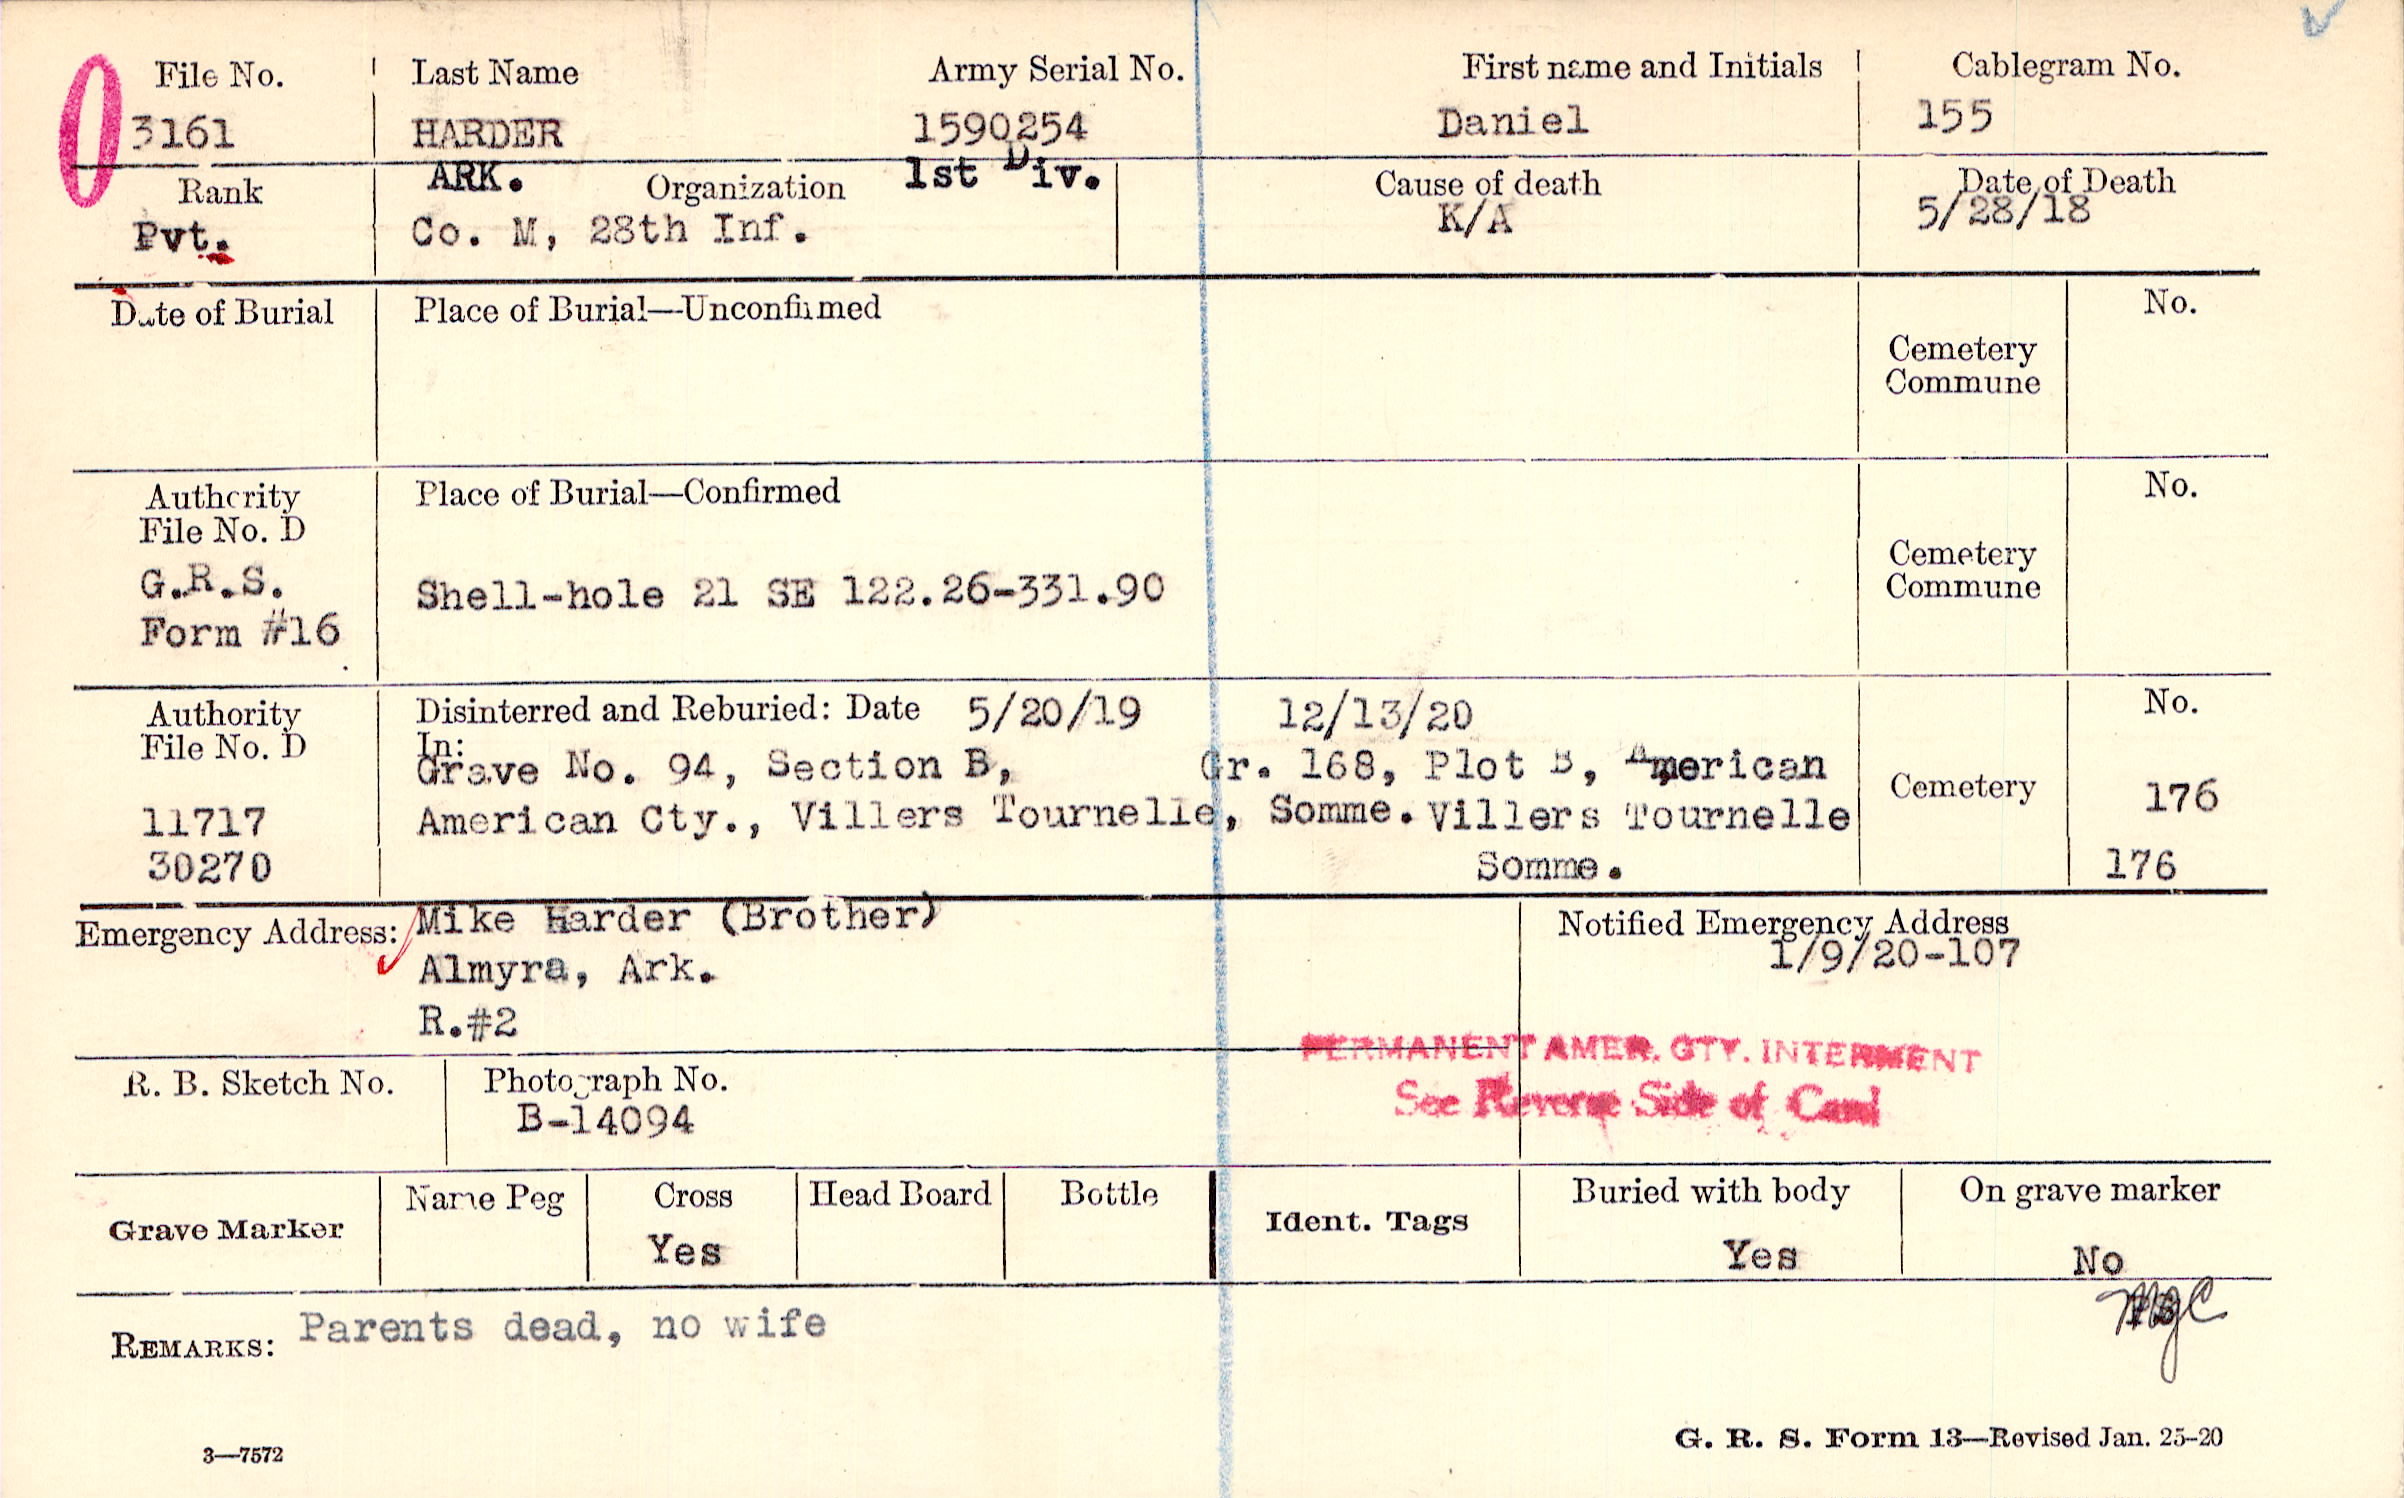 File No. Last Name Army Serial No. First name and Initials Cablegram No.
3161 HARDER 1590254 Daniel 155
Rank ARK. Organization 1st Div. Cause of death Date of Death
Pvt. Co. M, 28th Inf. K/A 5/28/18
Date of Burial Place of Burial—Unconfirmed No.
Cemetery
Commune
Authority Place of Burial—Confirmed No.
File No. D
Cemetery
Commune
G.R.S. Shell-hole 21 SE 122.26-331.90
Form #16
Authority Disinterred and Reburied: Date 5/20/19 12/13/20 No.
File No. D In:
Grave No. 94, Section B, Gr. 168, Plot B, American
Cemetery 176
11717 American Cty., Villers Tournelle, Somme. Villers Tournelle
30270 Somme. 176
Emergency Address: Mike Harder (Brother) Notified Emergency Address
Almyra, Ark. 1/9/20-107
R.#2
PERMANENT AMER. CTY. INTERMENT
R. B. Sketch No. Photograph No. See Reverse Side of Card
B-14094
Grave Marker Name Peg Cross Head Board Bottle Ident. Tags Buried with body On grave marker
Yes Yes No
REMARKS: Parents dead, no wife
3—7572 G. R. S. Form 13—Revised Jan. 25-20